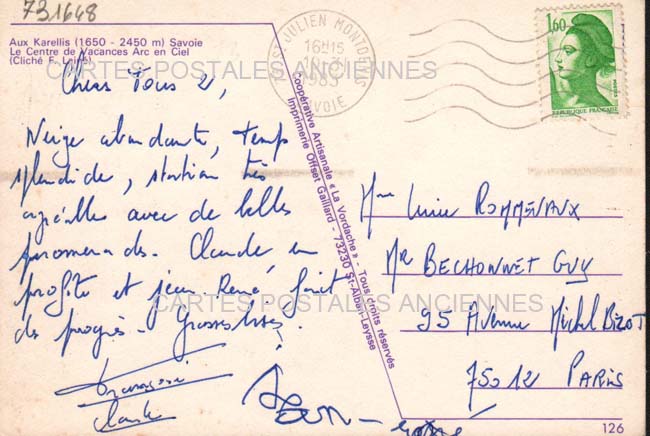 731648
Aux Karellis (1650 - 2450 m) Savoie
Le Centre de Vacances Arc en Ciel
(Cliché F.
CARTES POSTALES ANCIENNES
ST-JULIEN MONTDENIS
16H15
1985
SAVOIE
1,60
REPUBLIQUE FRANÇAISE
Chers Tous 2,
Neige abondante, temps
splendide, station très
agréable avec de belles
promenades. Claude en
profite et Jean René fait
des progrès - Grosses bises !
Coopérative Artisanale « La Vordache » - Tous droits réservés
Imprimerie Offset Gaillard - 73230 St-Alban-Leysse
Mme ROMMEVAUX
Mr BECHONNET GUY
95 Avenue Michel BIZOT
75012 PARIS
CARTES POSTALES ANCIENNES
Claude
Jean-
126